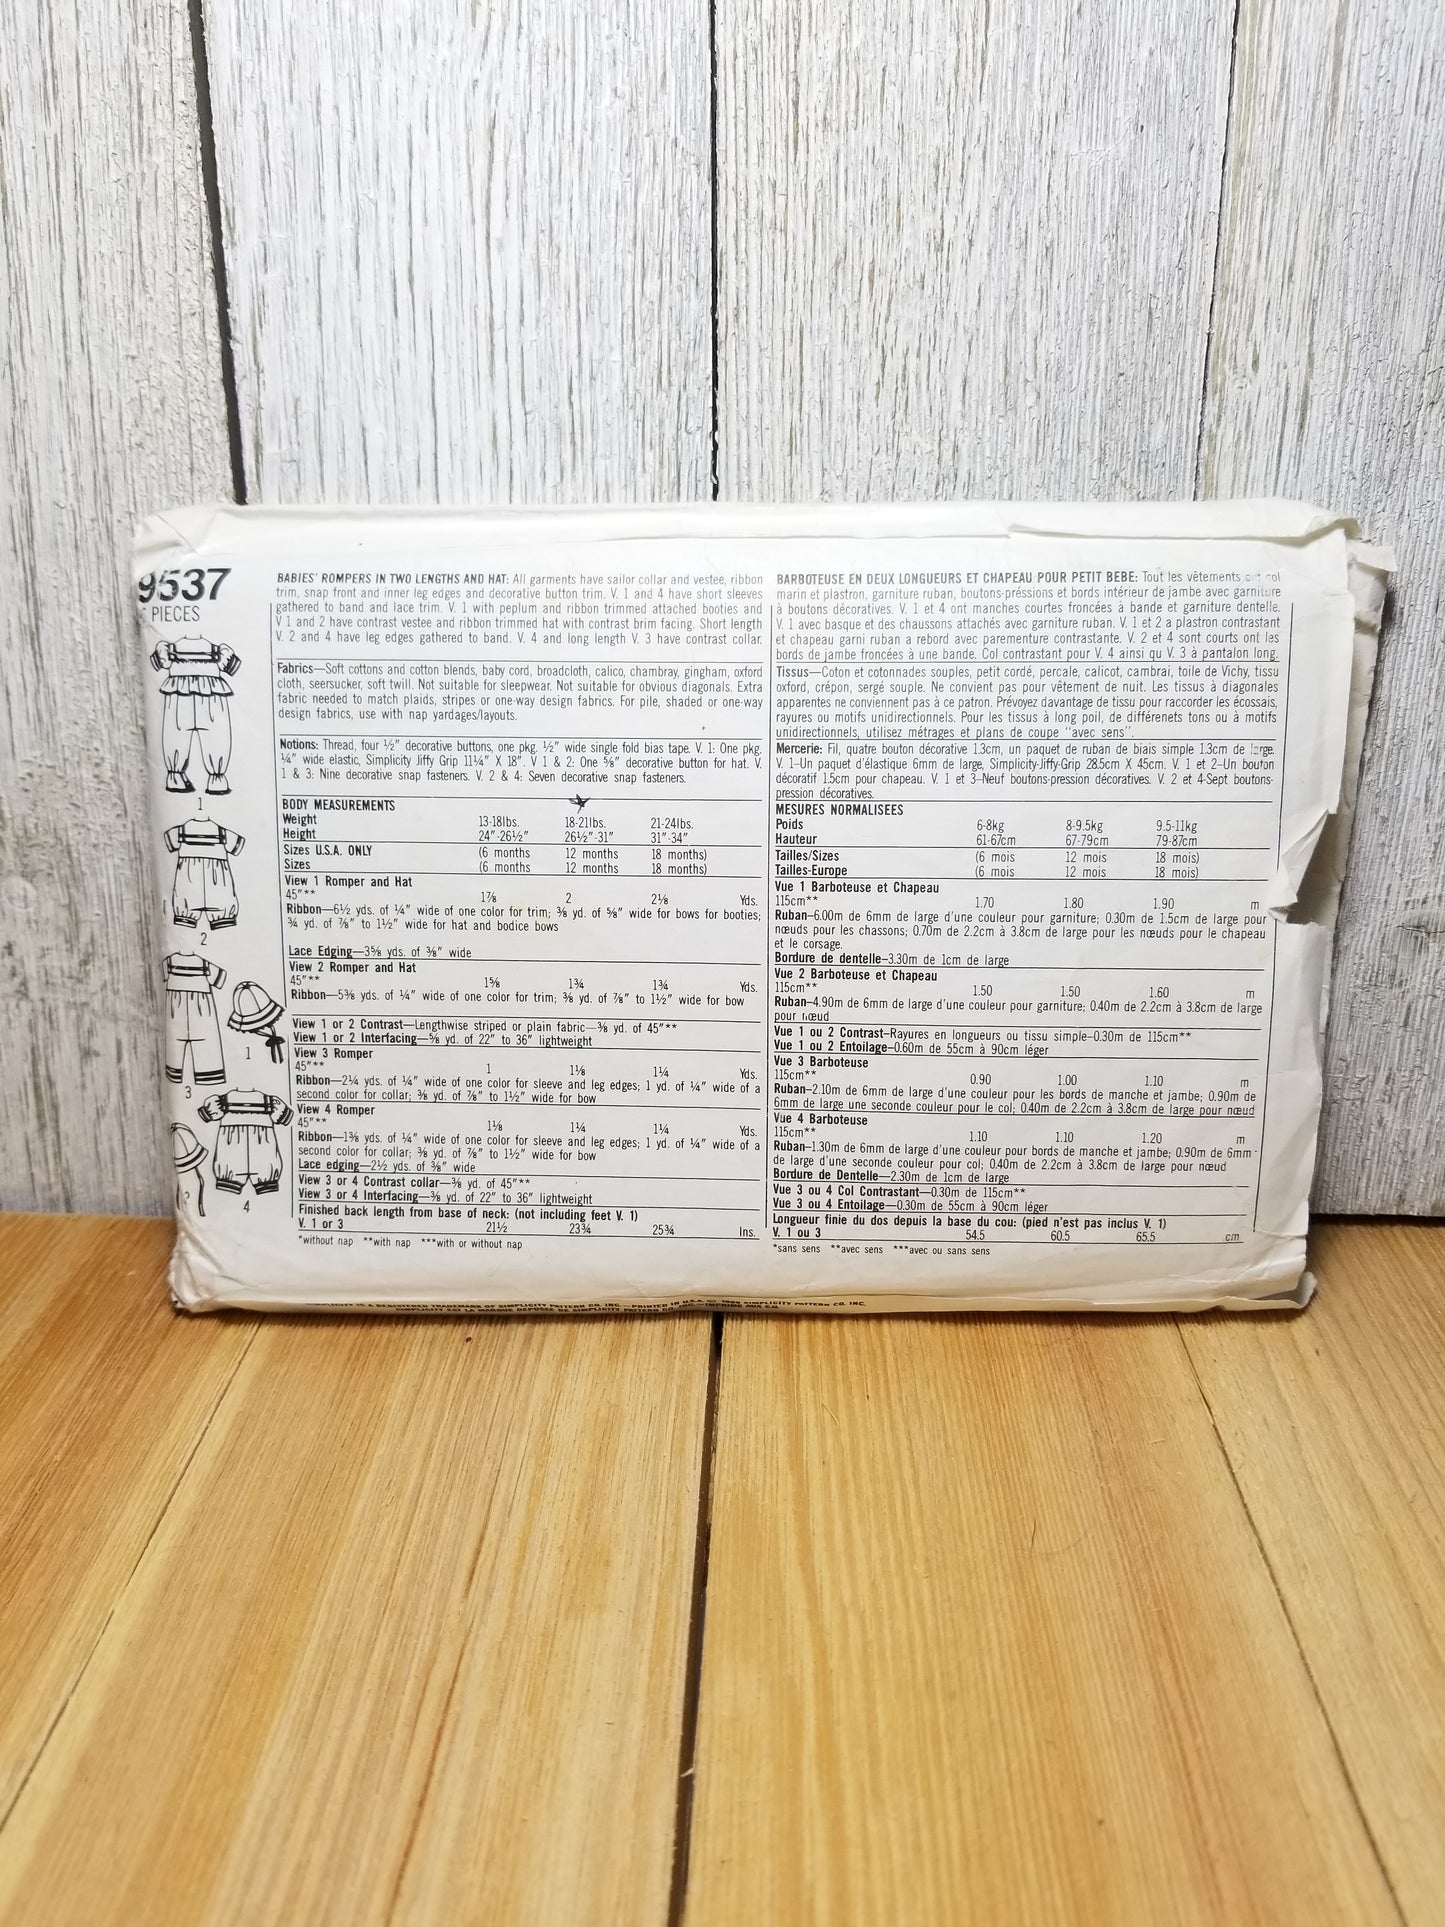 9537
PIECES
1
2
3
1
4
BABIES' ROMPERS IN TWO LENGTHS AND HAT: All garments have sailor collar and vestee, ribbon
trim, snap front and inner leg edges and decorative button trim. V. 1 and 4 have short sleeves
gathered to band and lace trim. V. 1 with peplum and ribbon trimmed attached booties and
V 1 and 2 have contrast vestee and ribbon trimmed hat with contrast brim facing. Short length
V. 2 and 4 have leg edges gathered to band. V. 4 and long length V. 3 have contrast collar.
Fabrics—Soft cottons and cotton blends, baby cord, broadcloth, calico, chambray, gingham, oxford
cloth, seersucker, soft twill. Not suitable for sleepwear. Not suitable for obvious diagonals. Extra
fabric needed to match plaids, stripes or one-way design fabrics. For pile, shaded or one-way
design fabrics, use with nap yardages/layouts.
Notions: Thread, four ½" decorative buttons, one pkg. ½" wide single fold bias tape. V. 1: One pkg.
¼" wide elastic, Simplicity Jiffy Grip 11¼" X 18". V 1 & 2: One ⅝" decorative button for hat. V.
1 & 3: Nine decorative snap fasteners. V. 2 & 4: Seven decorative snap fasteners.
BODY MEASUREMENTS
Weight 13-18lbs. 18-21lbs. 21-24lbs.
Height 24"-26½" 26½"-31" 31"-34"
Sizes U.S.A. ONLY (6 months 12 months 18 months)
Sizes (6 months 12 months 18 months)
View 1 Romper and Hat
45"** 1⅞ 2 2⅛ Yds.
Ribbon—6½ yds. of ¼" wide of one color for trim; ⅜ yd. of ⅝" wide for bows for booties;
¾ yd. of ⅞" to 1½" wide for hat and bodice bows
Lace Edging—3⅝ yds. of ⅜" wide
View 2 Romper and Hat
45"** 1⅝ 1¾ 1¾ Yds.
Ribbon—5⅜ yds. of ¼" wide of one color for trim; ⅜ yd. of ⅞" to 1½" wide for bow
View 1 or 2 Contrast—Lengthwise striped or plain fabric—⅜ yd. of 45"**
View 1 or 2 Interfacing—⅝ yd. of 22" to 36" lightweight
View 3 Romper
45"** 1 1⅛ 1¼ Yds.
Ribbon—2¼ yds. of ¼" wide of one color for sleeve and leg edges; 1 yd. of ¼" wide of a
second color for collar; ⅜ yd. of ⅞" to 1½" wide for bow
View 4 Romper
45"** 1⅛ 1¼ 1¼ Yds.
Ribbon—1⅜ yds. of ¼" wide of one color for sleeve and leg edges; 1 yd. of ¼" wide of a
second color for collar; ⅜ yd. of ⅞" to 1½" wide for bow
Lace edging—2½ yds. of ⅜" wide
View 3 or 4 Contrast collar—⅜ yd. of 45"**
View 3 or 4 Interfacing—⅜ yd. of 22" to 36" lightweight
Finished back length from base of neck: (not including feet V. 1)
V. 1 or 3 21½ 23¾ 25¾ Ins.
*without nap **with nap ***with or without nap
BARBOTEUSE EN DEUX LONGUEURS ET CHAPEAU POUR PETIT BEBE: Tout les vêtements col
marin et plastron, garniture ruban, boutons-préssions et bords intérieur de jambe avec garniture
à boutons décoratives. V. 1 et 4 ont manches courtes froncées à bande et garniture dentelle.
V. 1 avec basque et des chaussons attachés avec garniture ruban. V. 1 et 2 a plastron contrastant
et chapeau garni ruban a rebord avec parementure contrastante. V. 2 et 4 sont courts ont les
bords de jambe froncées à une bande. Col contrastant pour V. 4 ainsi qu V. 3 à pantalon long.
Tissus—Coton et cotonnades souples, petit cordé, percale, calicot, cambrai, toile de Vichy, tissu
oxford, crépon, sergé souple. Ne convient pas pour vêtement de nuit. Les tissus à diagonales
apparentes ne conviennent pas à ce patron. Prévoyez davantage de tissu pour raccorder les écossais,
rayures ou motifs unidirectionnels. Pour les tissus à long poil, de différenets tons ou à motifs
unidirectionnels, utilisez métrages et plans de coupe "avec sens".
Mercerie: Fil, quatre bouton décorative 1.3cm, un paquet de ruban de biais simple 1.3cm de large.
V. 1—Un paquet d'élastique 6mm de large, Simplicity-Jiffy-Grip 28.5cm X 45cm. V. 1 et 2—Un bouton
décoratif 1.5cm pour chapeau. V. 1 et 3—Neuf boutons-pression décoratives. V. 2 et 4-Sept boutons-
pression décoratives.
MESURES NORMALISEES
Poids 6-8kg 8-9.5kg 9.5-11kg
Hauteur 61-67cm 67-79cm 79-87cm
Tailles/Sizes (6 mois 12 mois 18 mois)
Tailles-Europe (6 mois 12 mois 18 mois)
Vue 1 Barboteuse et Chapeau
115cm** 1.70 1.80 1.90 m
Ruban—6.00m de 6mm de large d'une couleur pour garniture; 0.30m de 1.5cm de large pour
nœuds pour les chassons; 0.70m de 2.2cm à 3.8cm de large pour les nœuds pour le chapeau
et le corsage.
Bordure de dentelle—3.30m de 1cm de large
Vue 2 Barboteuse et Chapeau
115cm** 1.50 1.50 1.60 m
Ruban—4.90m de 6mm de large d'une couleur pour garniture; 0.40m de 2.2cm à 3.8cm de large
pour nœud
Vue 1 ou 2 Contrast—Rayures en longueurs ou tissu simple—0.30m de 115cm**
Vue 1 ou 2 Entoilage—0.60m de 55cm à 90cm léger
Vue 3 Barboteuse
115cm** 0.90 1.00 1.10 m
Ruban—2.10m de 6mm de large d'une couleur pour les bords de manche et jambe; 0.90m de
6mm de large une seconde couleur pour le col; 0.40m de 2.2cm à 3.8cm de large pour nœud
Vue 4 Barboteuse
115cm** 1.10 1.10 1.20 m
Ruban—1.30m de 6mm de large d'une couleur pour bords de manche et jambe; 0.90m de 6mm
de large d'une seconde couleur pour col; 0.40m de 2.2cm à 3.8cm de large pour nœud
Bordure de Dentelle—2.30m de 1cm de large
Vue 3 ou 4 Col Contrastant—0.30m de 115cm**
Vue 3 ou 4 Entoilage—0.30m de 55cm à 90cm léger
Longueur finie du dos depuis la base du cou: (pied n'est pas inclus V. 1)
V. 1 ou 3 54.5 60.5 65.5 cm
*sans sens **avec sens ***avec ou sans sens
SIMPLICITY IS A REGISTERED TRADEMARK OF SIMPLICITY PATTERN CO. INC.—PRINTED IN U.S.A. © 1989 SIMPLICITY PATTERN CO. INC.
SIMPLICITY EST LA MARQUE DEPOSEE DE SIMPLICITY PATTERN CO. INC.—IMPRIME AUX E.U.